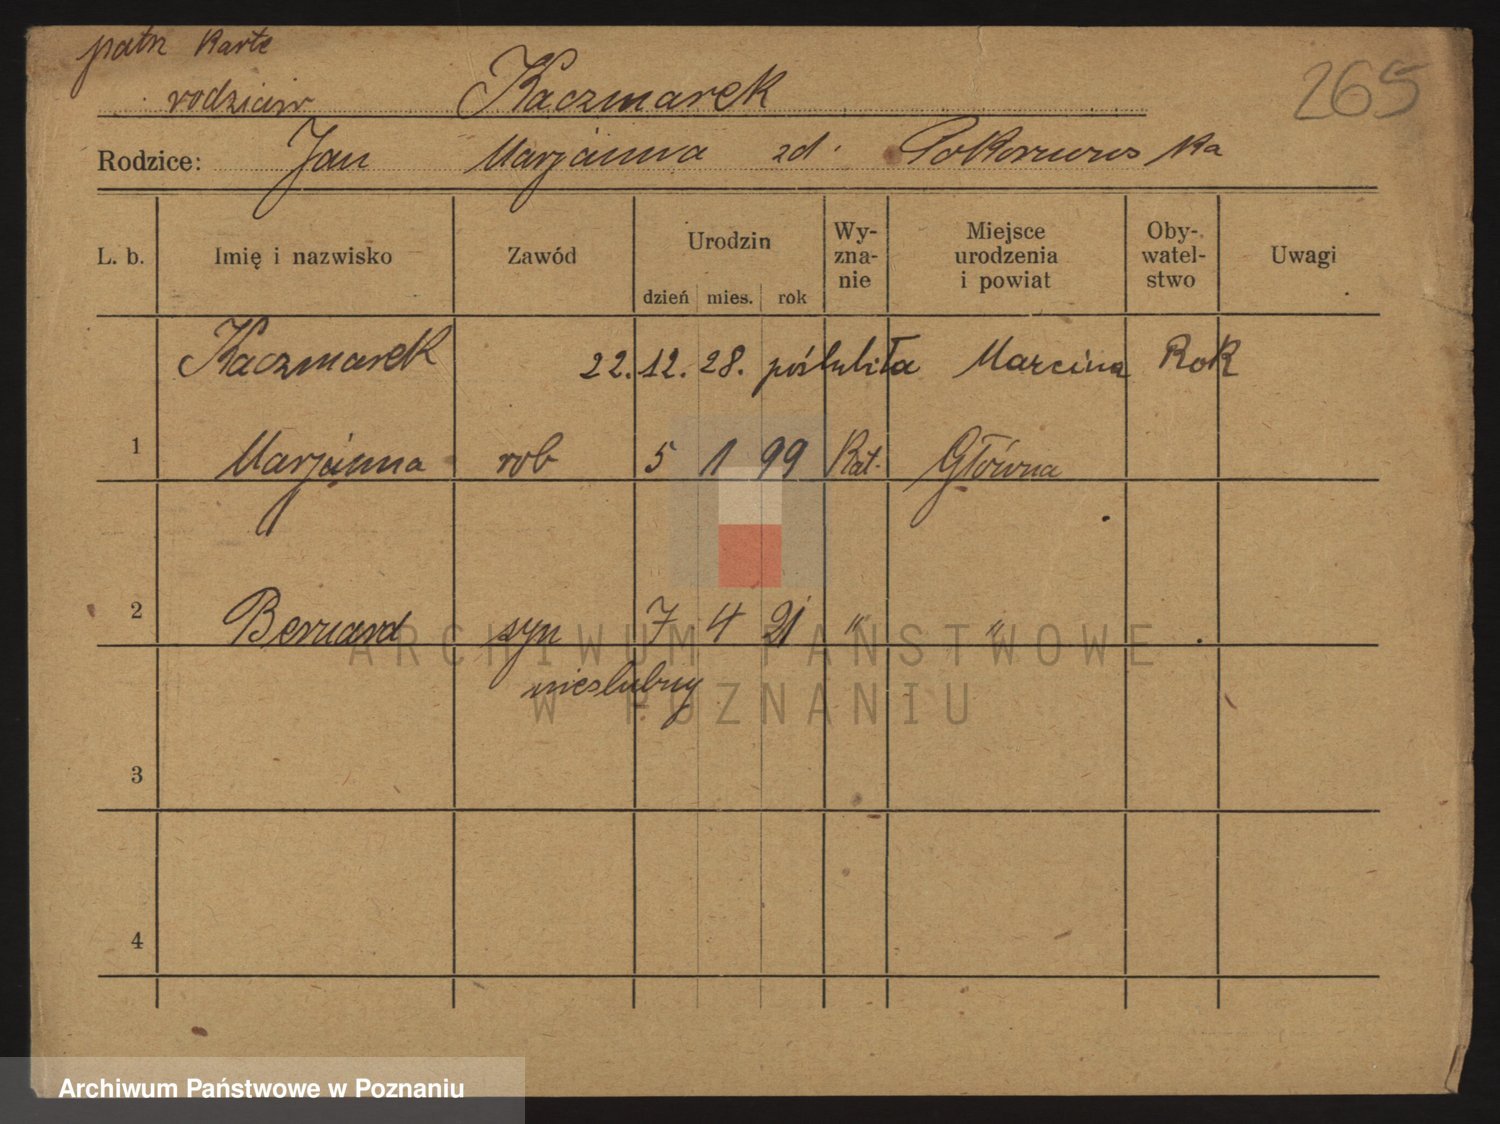 patrz Karte
rodziców Kaczmarek 265
Rodzice: Jan Marjanna zd. Pokornowska
L. b. Imię i nazwisko Zawód Urodzin dzień mies. rok Wy-zna-nie Miejsce urodzenia i powiat Oby-watel-stwo Uwagi
Kaczmarek 22. 12. 28. poślubiła Marcina Rok
1 Marjanna rob 5 1 99 Kat. Główna
2 Bernard syn 7 4 21 " "
nieslubny
3
4
ARCHIWUM PAŃSTWOWE
W POZNANIU
Archiwum Państwowe w Poznaniu